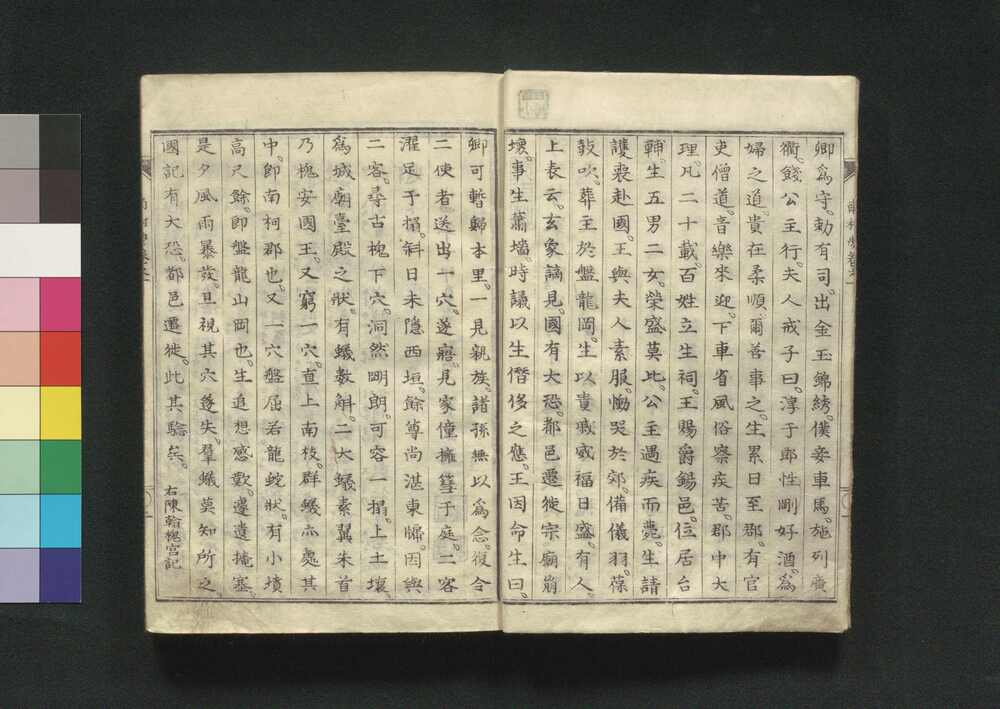 卿爲守。勅有司。出金玉錦綉。僕妾車馬。施列廣
衢。餞公主行。夫人戒子曰。淳于郎性剛好酒。爲
婦之道。貴在柔順。爾善事之。生累日至郡。有官
吏僧道。音樂來迎。下車省風俗察疾苦。郡中大
理。凡二十載。百姓立生祠。王賜爵錫邑。位居台
輔。生五男二女。榮盛莫比。公主遇疾而薨。生請
護喪赴國。王與夫人素服。慟哭於郊。備儀羽葆
鼓吹。葬主於盤龍岡。生以貴戚威福日盛。有人
上表云。玄象謫見。國有大恐。都邑遷徙。宗廟崩
壞。事生蕭墻。時議以生僭侈之應。王因命生曰。
卿可暫歸本里。一見親族。諸孫無以爲念。復令
二使者送出一穴。遂寤。見家僮擁篲于庭。二客
濯足于榻。斜日未隱西垣。餘尊尚湛東牖。因與
二客。尋古槐下穴。洞然明朗。可容一榻。上土壤
爲城廓臺殿之狀。有蟻數斛。二大蟻素翼朱首
乃槐安國王。又窮一穴。直上南枝。群蟻亦處其
中。即南柯郡也。又一穴盤屈若龍蛇狀。有小墳
高尺餘。即盤龍山岡也。生追想感歎。遽遣掩塞。
是夕風雨暴發。旦視其穴。遂失。羣蟻莫知所之
國記有大恐。都邑遷徙。此其驗矣。 右陳翰槐宮記